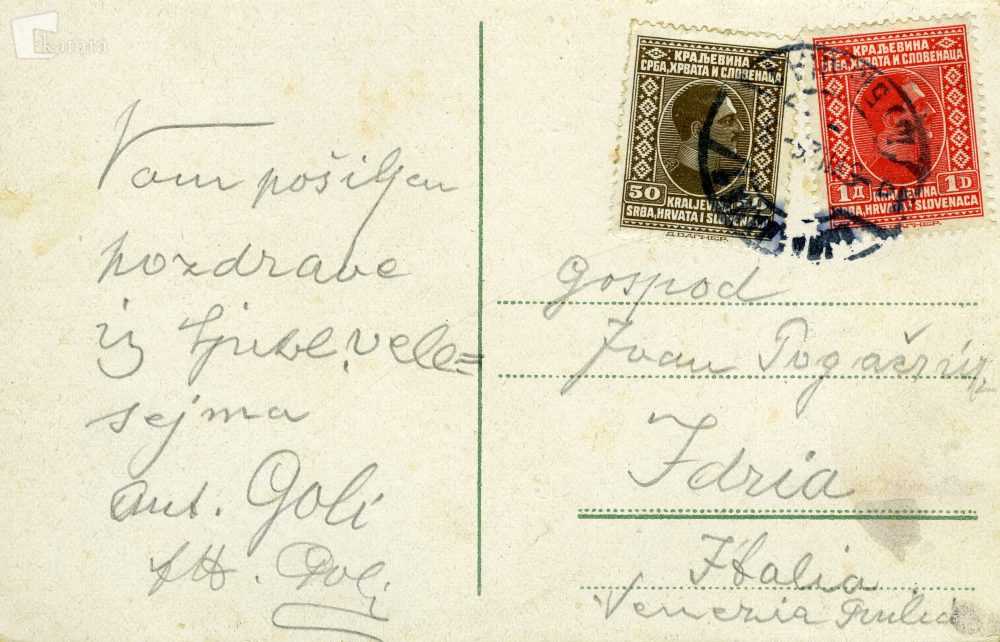 kamra
Vam pošiljam
pozdrave
iz Ljubl. vele=
sejma
Ant. Goli
Goli
КРАЉЕВИНА
СРБА, ХРВАТА И СЛОВЕНАЦА
50
KRALJEVINA
SRBA, HRVATA I SLOVENACA
Д. ВАГНЕР.
КРАЉЕВИНА
СРБА, ХРВАТА И СЛОВЕНАЦА
1Д 1D
KRALJEVINA
SRBA, HRVATA I SLOVENACA
ВАГНЕР.
Gospod
Ivan
Idria
Italia
Venezia Giulia